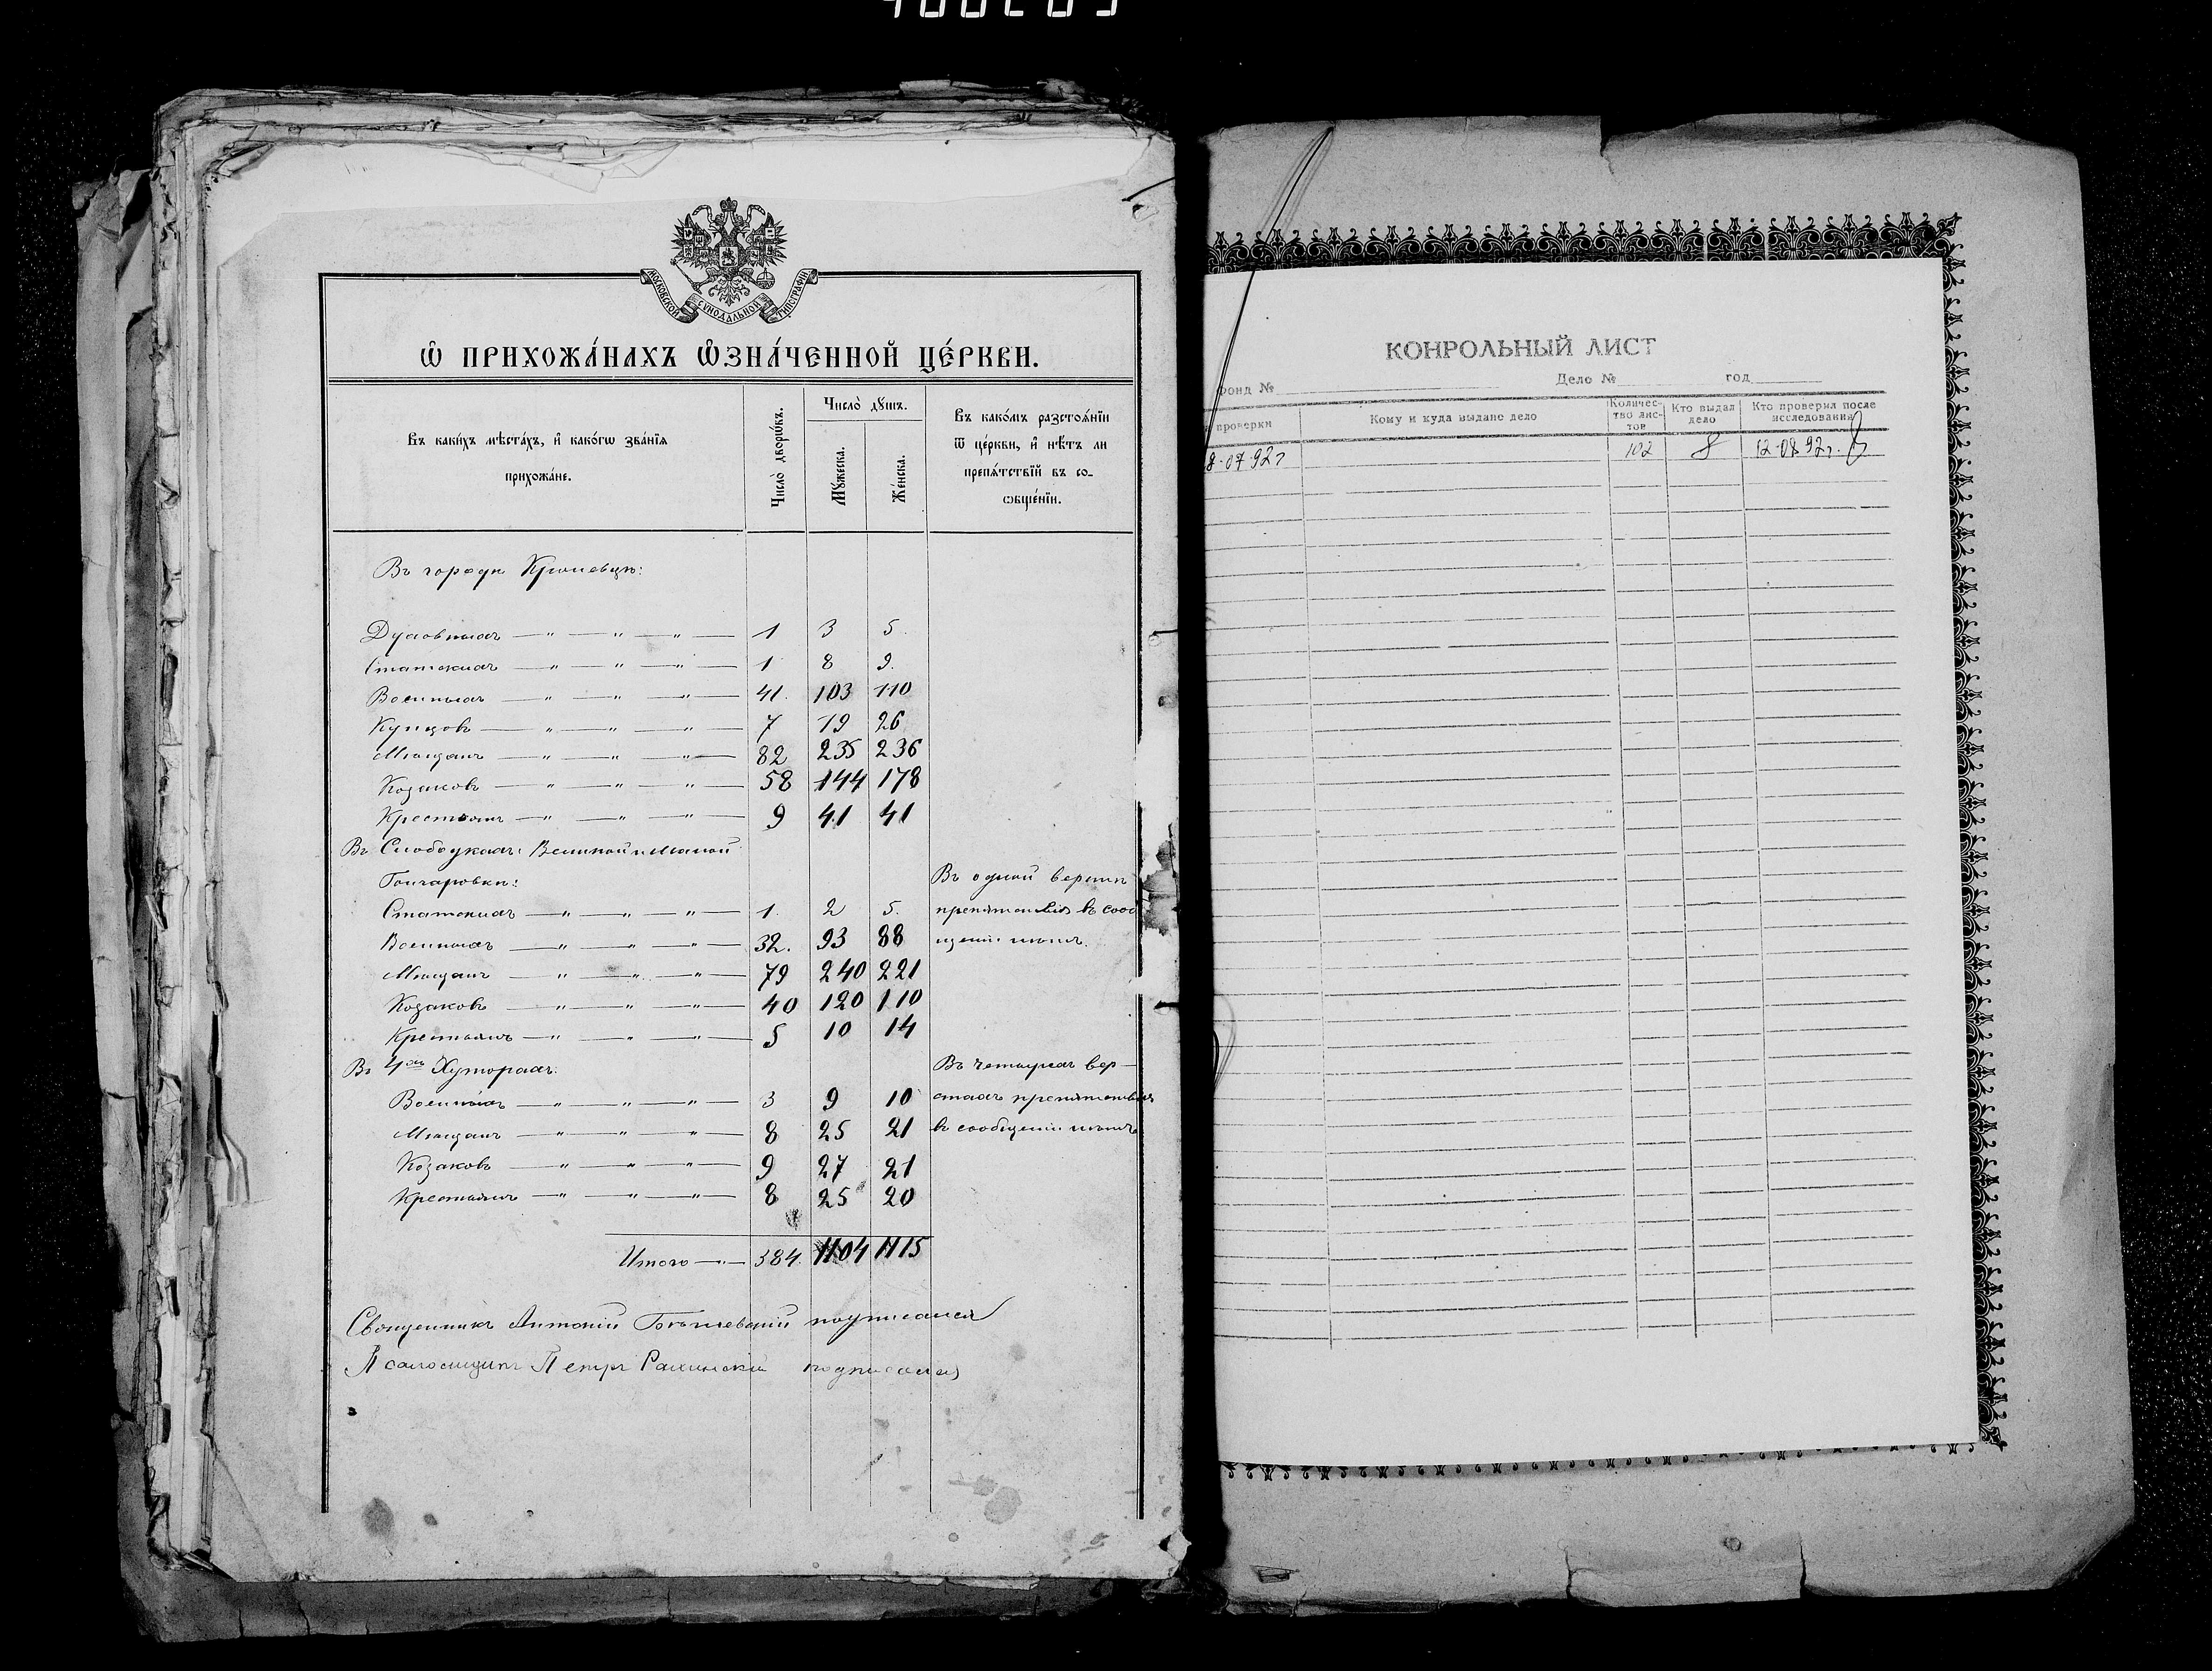 МОСКОВСКОЙ СѴНОДАЛЬНОЙ ТИПОГРАФІИ
Ѡ҆ ПРИХОЖА́НАХЪ Ѡ҆ЗНА́ЧЕННОЙ ЦЕ́РКВИ.
Въ каки́хъ мѣста́хъ, и҆ како́гѡ зва́нїѧ прихожа́не.
Число̀ дворѡ́въ.
Число̀ дꙋ́шъ.
Мꙋ́жеска.
Же́нска.
Въ како́мъ разстоѧ́нїи
ѿ це́ркви, и҆ нѣ́тъ ли
препѧ́тствїй въ со-
ѻбще́нїи.
Въ городѣ Кролевцѣ:
Духовныхъ — „ — „ — „ — 1 3 5
Статскихъ — „ — „ — „ — 1 8 9.
Военныхъ — „ — „ — „ — 41. 103 110
Купцовъ — „ — „ — „ — 7 19 26
Мѣщанъ — „ — „ — „ — 82 235 236
Козаковъ — „ — „ — „ — 58 144 178
Крестьянъ — „ — „ — „ — 9 41 41
Въ Слободкахъ: Великой и Малой
Гончаровкѣ: Въ одной верстѣ
Статскихъ — „ — „ — „ — 1. 2 5. препятствія въ сооб
Военныхъ — „ — „ — „ — 32. 93 88 щеніи нѣтъ.
Мѣщанъ — „ — „ — „ — 79 240 221
Козаковъ — „ — „ — „ — 40 120 110
Крестьянъ — „ — „ — „ — 5 10 14
Въ 4хъ Хуторахъ: Въ четырехъ вер—
Военныхъ — „ — „ — „ — 3 9 10 стахъ препятствія
Мѣщанъ — „ — „ — „ — 8 25 21 въ сообщеніи нѣтъ
Козаковъ — „ — „ — „ — 9 27 21
Крестьянъ — „ — „ — „ — 8 25 20
Итого — „ — 384. 1104 1115
Священникъ Антоній подписался
Псаломщикъ Петръ подписался
КОНРОЛЬНЫЙ ЛИСТ
фонд № Дело № год
проверки
Кому и куда выдано дело
Количес-
тво лис-
тов
Кто выдал
дело
Кто проверил после
исследования
8.07.92г 102 12.08.92г.